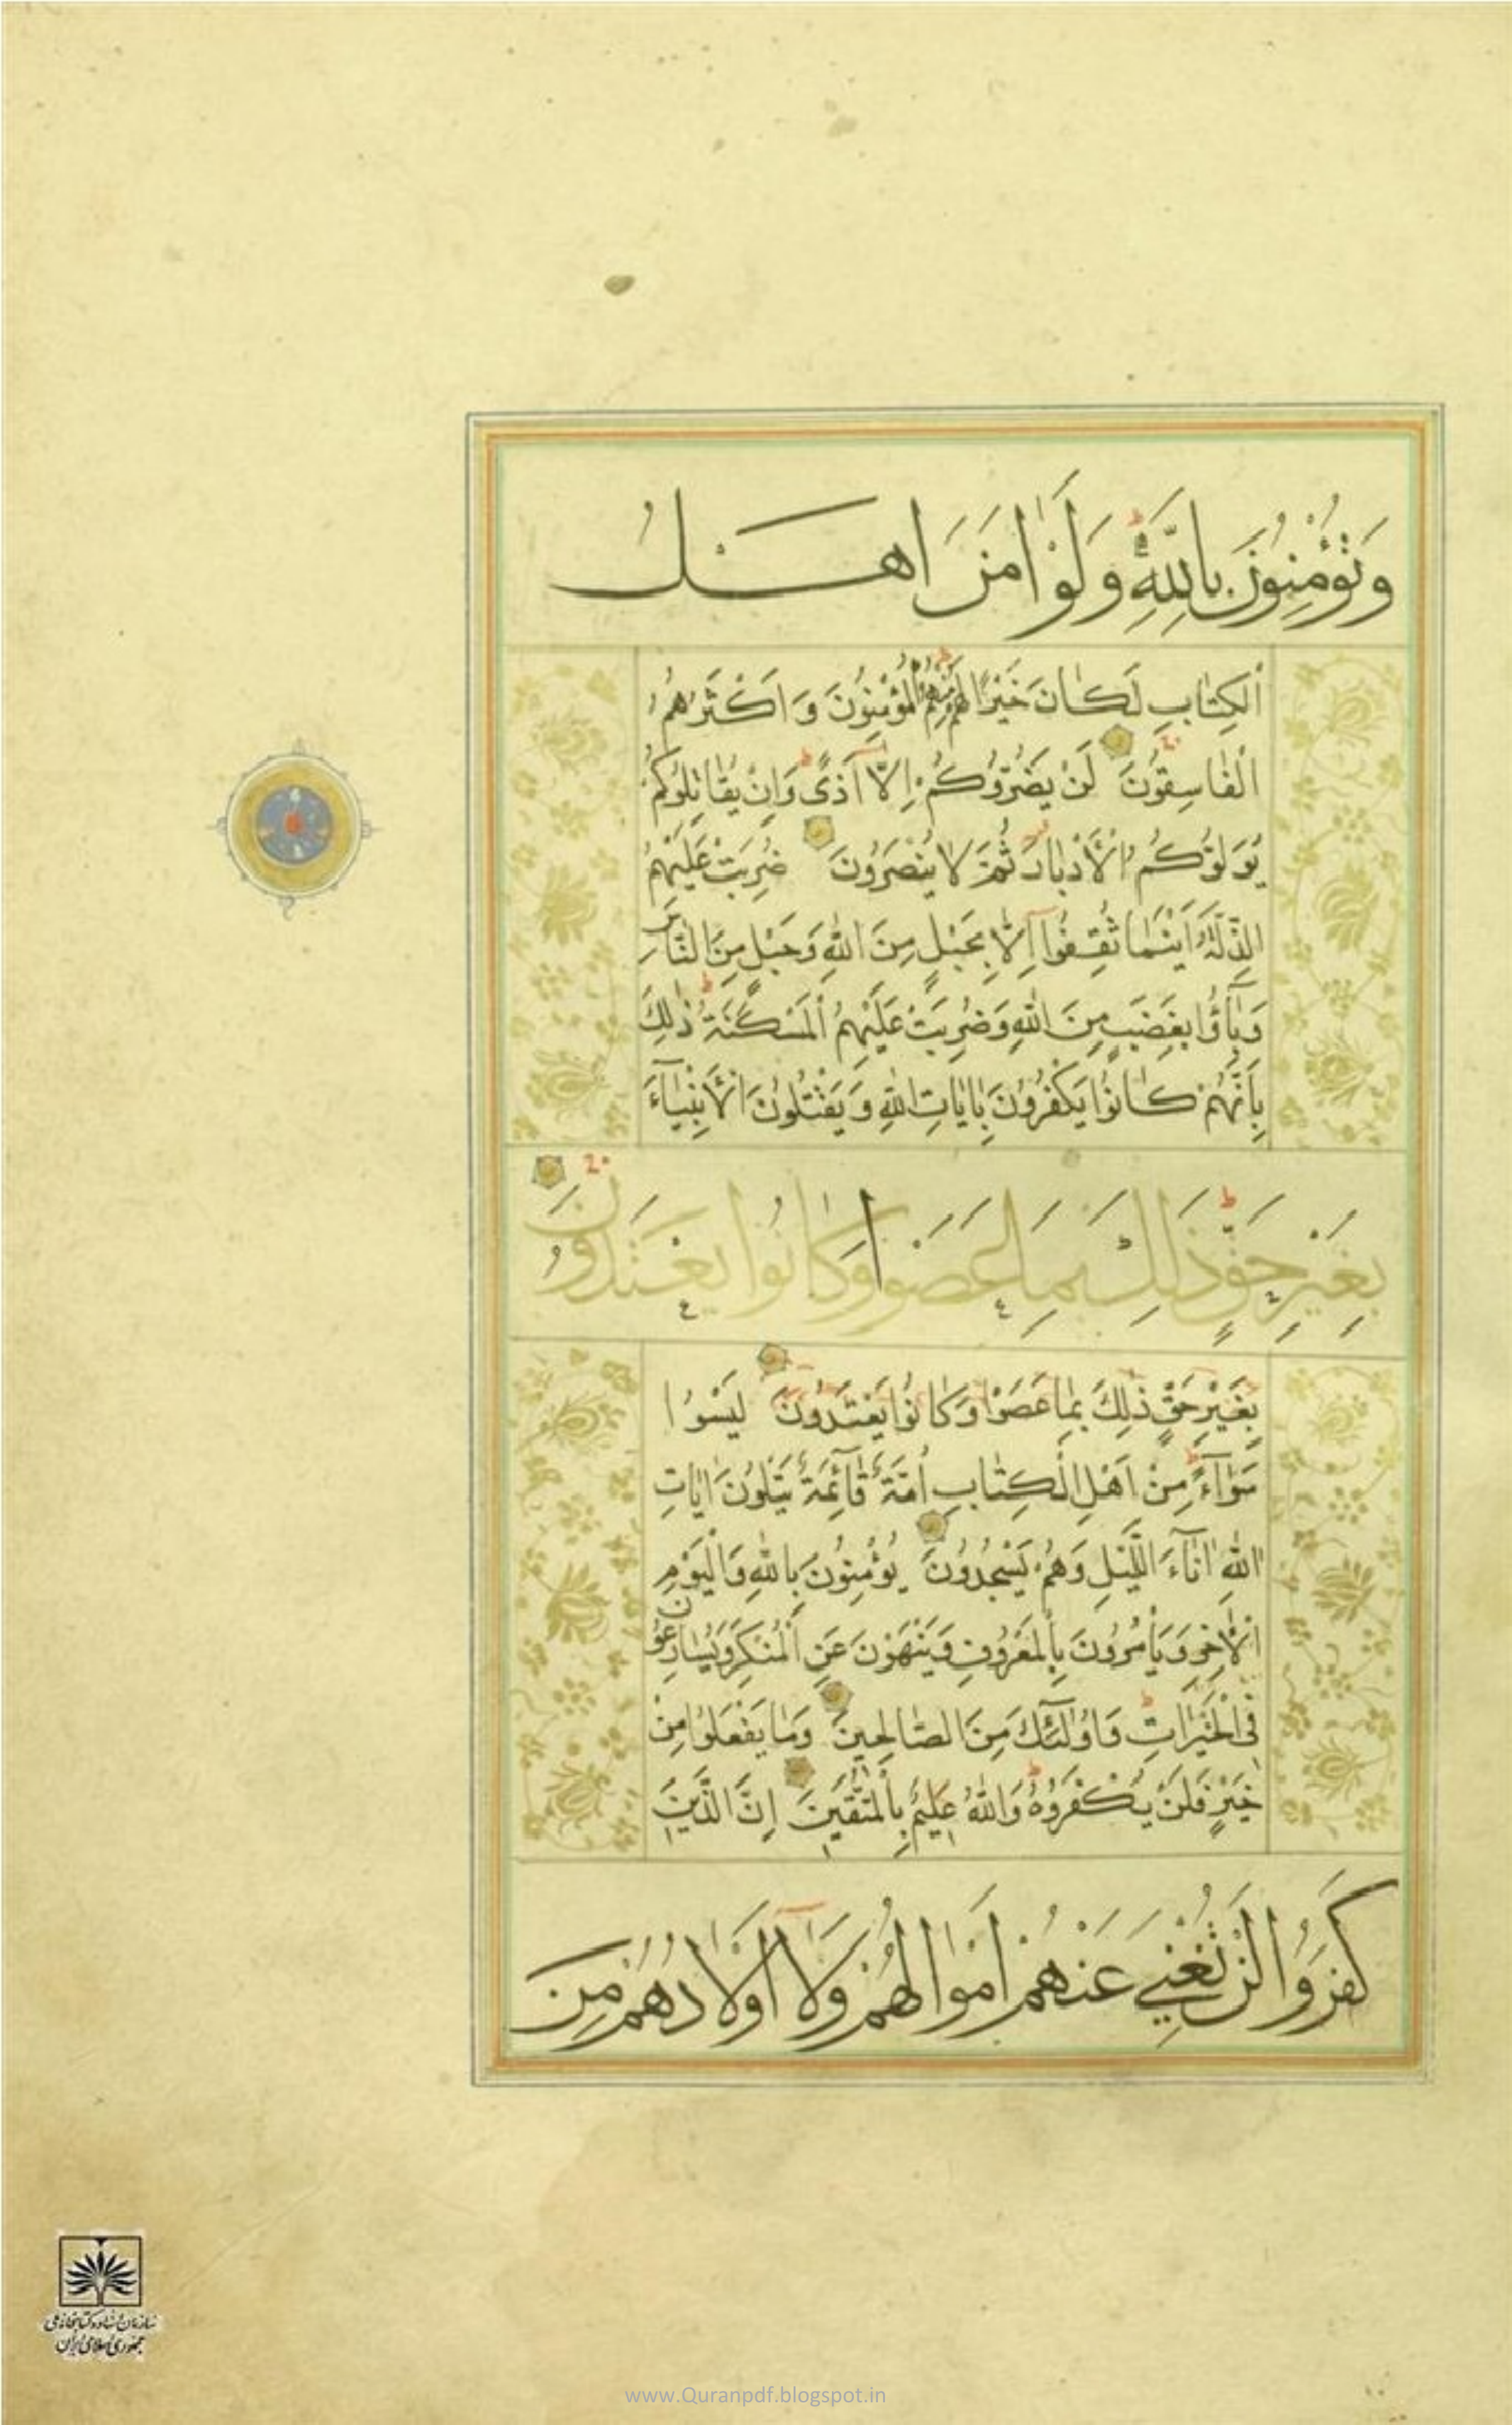 وَتُؤْمِنُونَ بِاللَّهِ وَلَوْ اٰمَنَ اَهْلُ
الْكِتَابِ لَكَانَ خَيْرًا لَهُمْ مِنْهُمُ الْمُؤْمِنُونَ وَاَكْثَرُهُمُ
الْفَاسِقُونَ لَنْ يَضُرُّوكُمْ اِلَّا اَذًى وَاِنْ يُقَاتِلُوكُمْ
يُوَلُّوكُمُ الْاَدْبَارَ ثُمَّ لَا يُنْصَرُونَ ضُرِبَتْ عَلَيْهِمُ
الذِّلَّةُ اَيْنَمَا ثُقِفُوا اِلَّا بِحَبْلٍ مِنَ اللهِ وَحَبْلٍ مِنَ النَّاسِ
وَبَآؤُا بِغَضَبٍ مِنَ اللهِ وَضُرِبَتْ عَلَيْهِمُ الْمَسْكَنَةُ ذٰلِكَ
بِاَنَّهُمْ كَانُوا يَكْفُرُونَ بِاٰيَاتِ اللهِ وَيَقْتُلُونَ الْاَنْبِيَآءَ
بِغَيْرِ حَقٍّ ذٰلِكَ بِمَا عَصَوْا وَكَانُوا يَعْتَدُونَ
بِغَيْرِ حَقٍّ ذٰلِكَ بِمَا عَصَوْا وَكَانُوا يَعْتَدُونَ لَيْسُوا
سَوَآءً مِنْ اَهْلِ الْكِتَابِ اُمَّةٌ قَآئِمَةٌ يَتْلُونَ اٰيَاتِ
اللهِ اٰنَآءَ اللَّيْلِ وَهُمْ يَسْجُدُونَ يُؤْمِنُونَ بِاللهِ وَالْيَوْمِ
الْاٰخِرِ وَيَأْمُرُونَ بِالْمَعْرُوفِ وَيَنْهَوْنَ عَنِ الْمُنْكَرِ وَيُسَارِعُونَ
فِى الْخَيْرَاتِ وَاُولٰٓئِكَ مِنَ الصَّالِحِينَ وَمَا يَفْعَلُوا مِنْ
خَيْرٍ فَلَنْ يُكْفَرُوهُ وَاللهُ عَلِيمٌ بِالْمُتَّقِينَ اِنَّ الَّذِينَ
كَفَرُوا لَنْ تُغْنِيَ عَنْهُمْ اَمْوَالُهُمْ وَلَآ اَوْلَادُهُمْ مِنَ
سازمان اسناد و کتابخانه ملی
جمهوری اسلامی ایران
www.Quranpdf.blogspot.in